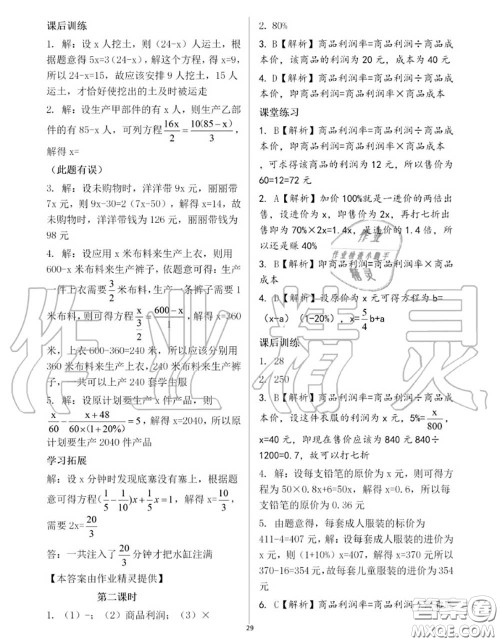 课后训练
1. 解：设 x 人挖土，则（24-x）人运土，根
据题意得 5x=3（24-x），解这个方程，得 x=9，
所以 24-x=15，故应该安排 9 人挖土，15 人
运土，才恰好使挖出的土及时被运走
2. 解：设生产甲部件的有 x 人，则生产乙部
件的有 85-x 人，可列方程 16x/2=10(85-x)/3，
解得 x=
（此题有误）
3. 解：设未购物时，洋洋带 9x 元，丽丽带
7x 元，则 9x-30=2（7x-50），解得 x=14，故
未购物时，洋洋带钱为 126 元，丽丽带钱为
98 元
4. 解：设用 x 米布料来生产上衣，则用
600-x 米布料来生产裤子，依题意可得：生产
一件上衣需要 3/2 米布料，生产一条裤子需要 1
米布料，则可得方程 x/(3/2)=(600-x)/1，解得 x=360
米，上衣 600-360=240 米，所以应该分别用
360 米布料来生产上衣，240 米布料来生产裤
子，一共可以上产 240 套学生服
5. 解：设原计划要生产 x 件产品，则
x/60-(x+48)/(60×(1+20%))=5，解得 x=2040，所以原
计划要生产 2040 件产品
学习拓展
解：设 x 分钟时发现底塞没有塞上，根据题
意可得方程(1/5-1/10)x+1/5x=1，解得 x=10/3，
需要 2x=20/3
答：一共注入了 20/3 分钟才把水缸注满
【本答案由作业精灵提供】
第二课时
1. （1）-；（2）商品利润；（3）×
2. 80%
3. D【解析】商品利润率=商品利润÷商品成
本价，该商品的利润为 20 元，成本为 40 元
4. B【解析】商品利润率=商品利润÷商品成
本价，即商品利润=商品利润率×商品成本
课堂练习
1. B【解析】商品利润率=商品利润÷商品成
本价，即商品利润=商品利润率×商品成本
，可求得该商品的利润为 12 元，所以售价为
60+12=72 元
2. A【解析】加价 100%就是一进价的两倍出
售，设进价为 x，即售价为 2x，再打七折出
售即为 2x×70%=1.4x，是进价的 1.4 倍，所
以还是赚 40%
3. B【解析】即商品利润=商品利润率×商品
成本
4. D【解析】设原价为 x 元可得方程为 b=
（x-a）（1-20%），x=5/4b+a
课后训练
1. 28
2. 250
3. B【解析】商品利润率=商品利润÷商品成
本价，设这件衣服的利润为 x 元，5%=x/800，
x=40 元，即现在售价应该为 840 元，840÷
1200=0.7，故可以打七折
4. 解：设每支铅笔的原价为 x 元，则可得方
程为 50×0.8x+6=50x，解得 x=0.36，所以每
支铅笔的原价为 0.36 元
5. 由题意得，每套成人服装的标价为
411-4=407 元，解：设每套成人服装的原价为
x 元，则（1+10%）x=407，解得 x=370 元所以
370-16=354 元，故每套儿童服装的进价为
354 元
6. C【解析】商品利润率=商品利润÷商品成
29
作业精灵